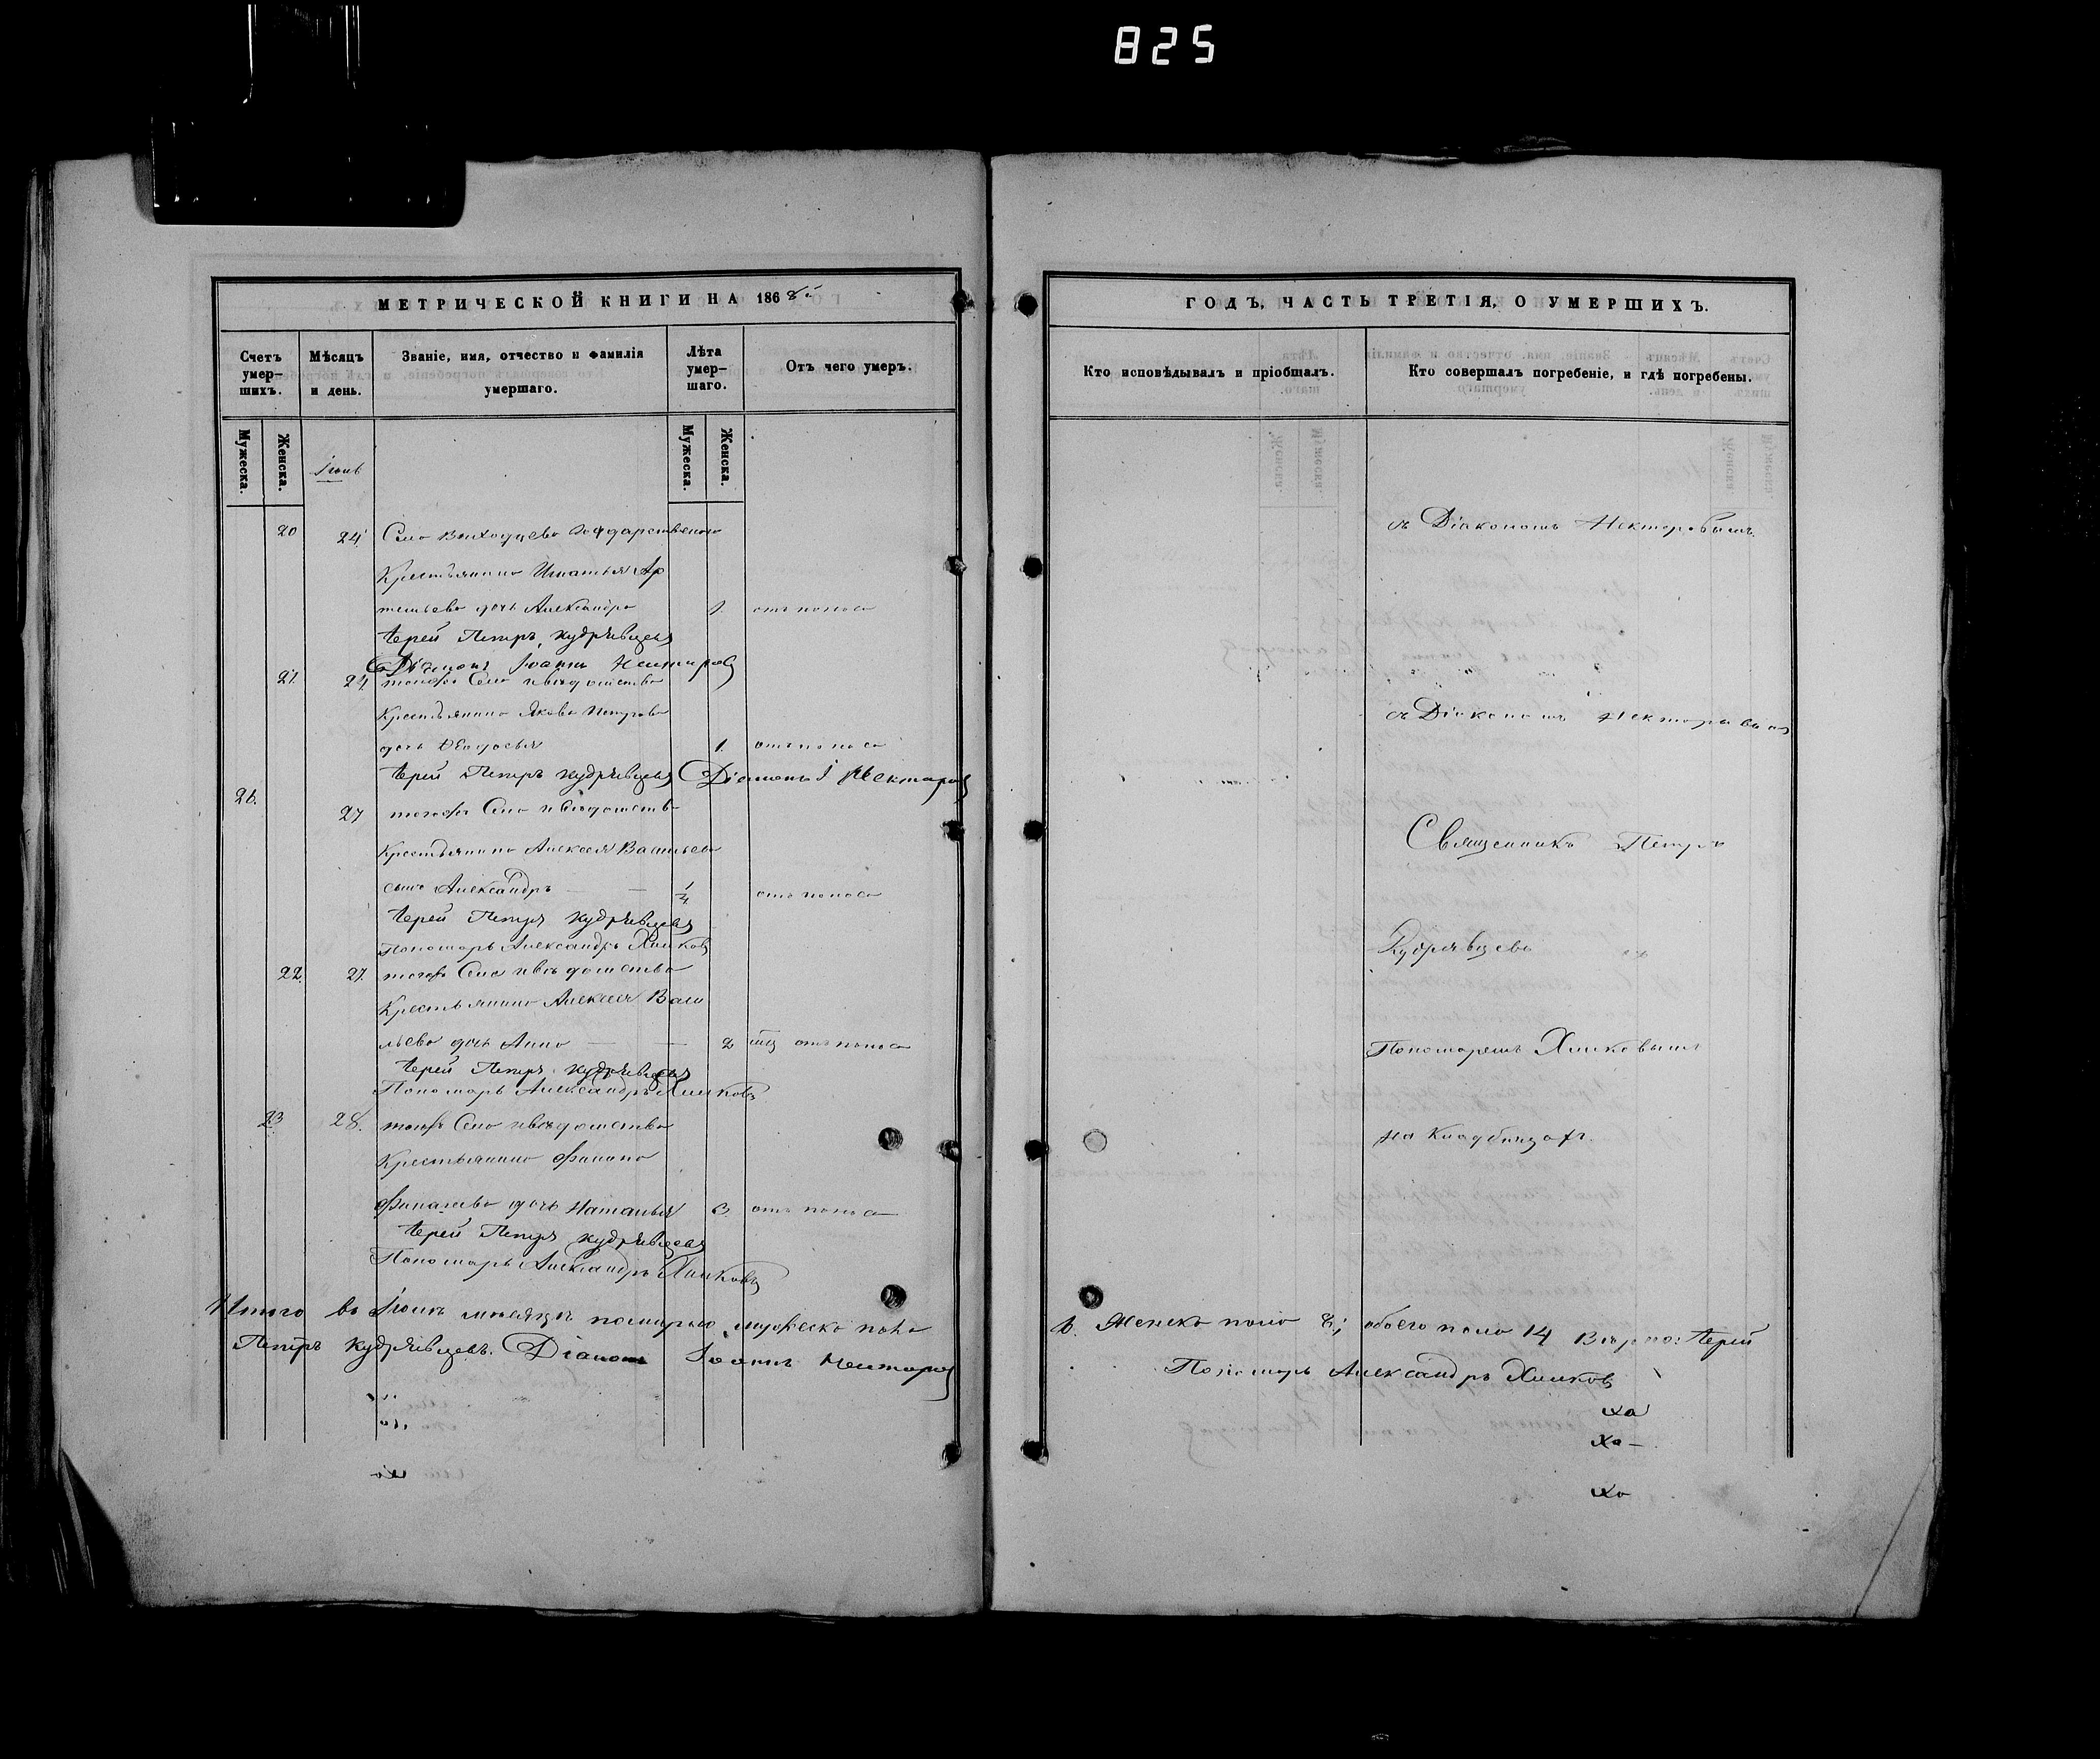 825
МЕТРИЧЕСКОЙ КНИГИ НА 1868й
Счетъ умер-
шихъ.
Мѣсяцъ
и день.
Званіе, имя, отчество и фамилія
умершаго.
Лѣта
умер-
шаго.
Отъ чего умеръ.
Мужеска.
Женска.
Іюнь
Мужеска.
Женска.
20 24 Села
Крестьянина Игнатья Ар
темьева дочь Александра 1 отъ поноса
Іерей Петръ Кудрявцевъ
Діаконъ Іоаннъ Нектаровъ
21. 24 тогожъ Села и вѣдомства
Крестьянина Якова Петрова
дочь Ѳеодосья 1. отъ поноса
Іерей Петръ Кудрявцевъ Діаконъ І Нектаровъ
26.
27 тогожъ Села и вѣдомства
Крестьянина Алексея Васильева
сынъ Александръ 1/4 отъ поноса
Іерей Петръ Кудрявцевъ
Пономарь Александръ Хилковъ
22. 27. тогожъ Села и вѣдомства
Крестьянина Алексея Васи
льева дочь Анна 2 отъ поноса
Іерей Петръ Кудрявцевъ
Пономарь Александръ Хилковъ
23 28. тогожъ Села и вѣдомства
Крестьянина Филипа
дочь Наталья 3 отъ поноса
Іерей Петръ Кудрявцевъ
Пономарь Александръ Хилковъ
Итого въ Іюнѣ мѣсяцѣ померло мужеска пола
Петръ Кудрявцевъ. Діаконъ Іоаннъ Нектаровъ
ГОДЪ, ЧАСТЬ ТРЕТІЯ, О УМЕРШИХЪ.
Кто исповѣдывалъ и пріобщалъ.
Кто совершалъ погребеніе, и гдѣ погребены.
съ Діакономъ Нектаровымъ.
съ Діакономъ Нектаровымъ
Священникъ Петръ
Кудрявцевъ съ
Пономаремъ Хилковымъ
на Кладбищахъ.
6. Женска пола 8; обоего пола 14 Вѣрно: Іерей
Пономарь Александръ Хилковъ